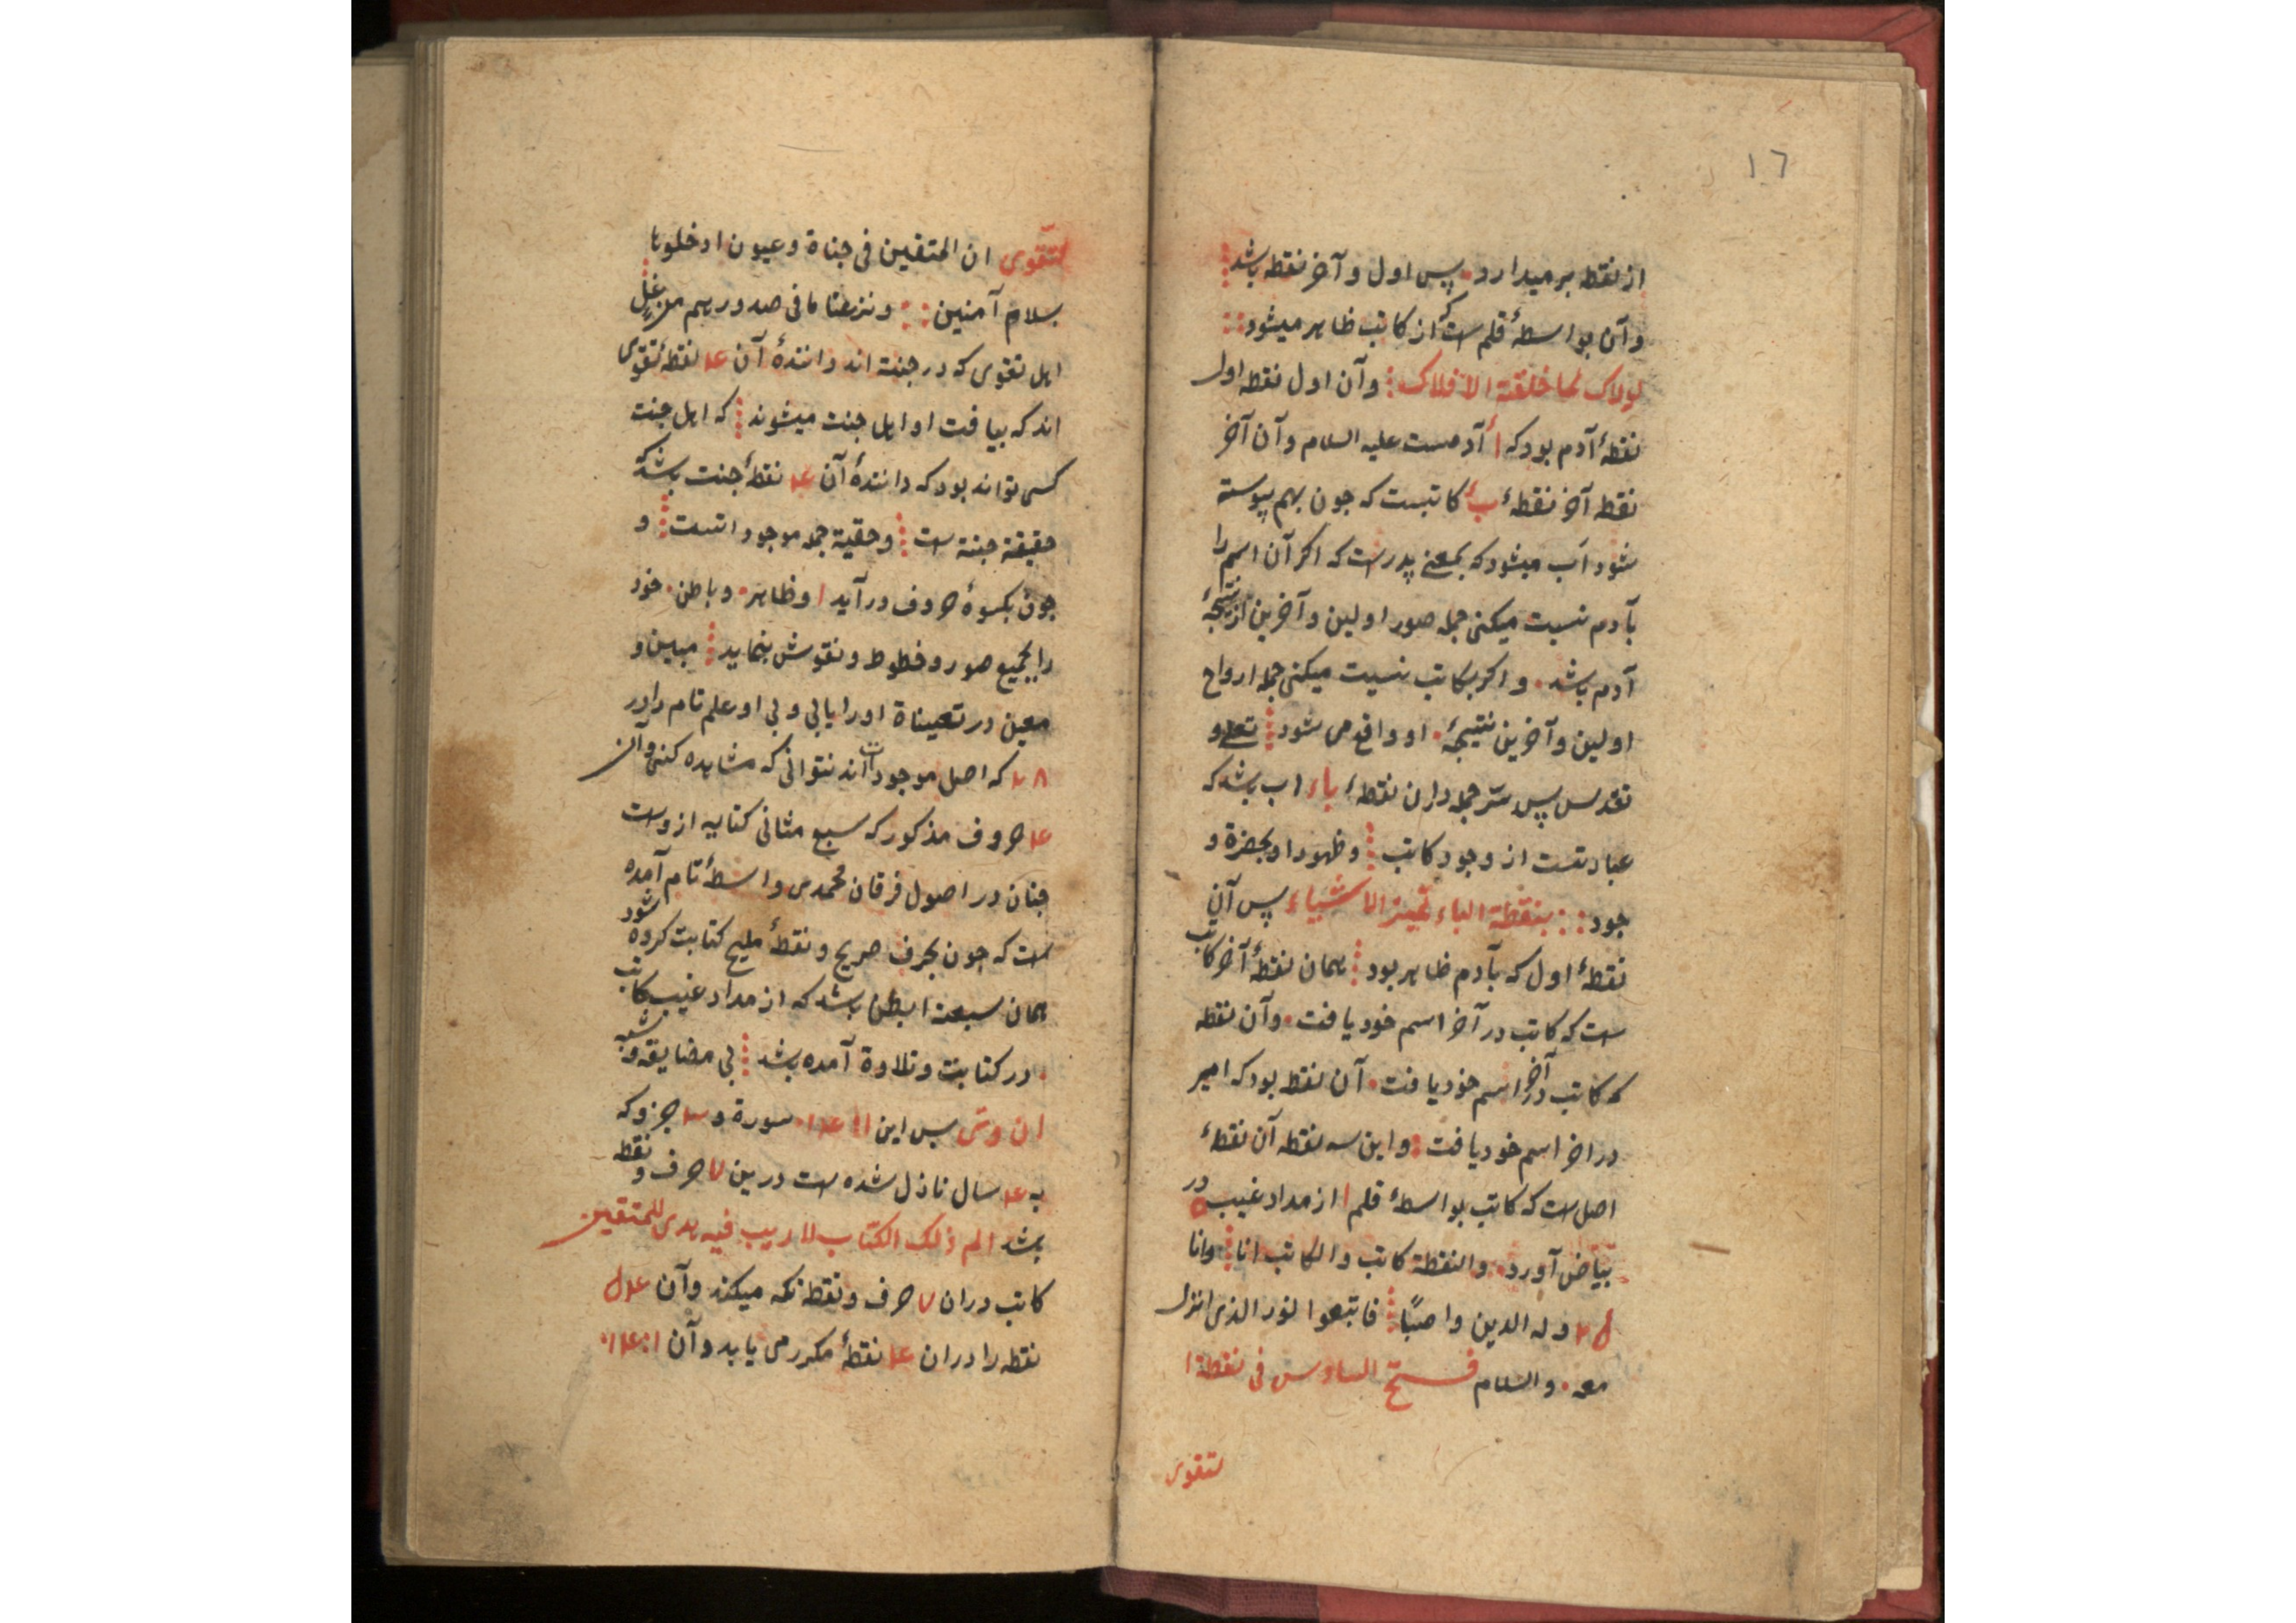 ١٦
از نقطه بر میدارد پس اول و آخر نقطه باشد
و آن بواسطهٔ قلم است که از کاتب ظاهر میشود
لولاک لما خلقة الافلاک و آن اول نقطه اول
نقطهٔ آدم بود که أ آدمست علیه السلام و آن آخر
نقطه آخر نقطهٔ ب کاتبست که جون بهم پیوسته
شود اَب میشود که بمعنی پدرست که اکر آن اسم را
بآدم نسبت میکنی جمله صور اولین و آخرین از نتیجهٔ
آدم باشد و اکر بکاتب نسبت میکنی جمله ارواح
اولین و آخرین نتیجهٔ او واقع می شود تعلی و
تقدس پس سّر جمله دران نقطهٔ باء اب باشد که
عبادتست از وجود کاتب و ظهور او بحضرة و
جود بنقطة الباء تمیز الاشیاء پس آن
نقطهٔ اول که بآدم ظاهر بود همان نقطهٔ آخر کاتب
است که کاتب در آخر اسم خود یافت و آن نقطه
که کاتب در آخر اسم خود یافت آن نقطه بود که امیر
در اخر اسم خود یافت و این سه نقطه آن نقطهٔ
اصل است که کاتب بواسطهٔ قلم ا از مداد غیب در
بیاض آورد والنقطة کاتب والکاتب انا وانا
وله الدین واصبًا فاتبعوا النور الذی انزل
معه والسلام فتح السادس فی نقطة ا
لتقوی
لتّقوی ان المتقین فی جناة وعیون ادخلوها
بسلام آمنین ونزعنا ما فی صدورهم من غل
اهل تقوی که در جنت اند دانندهٔ آن ۴ نقطهٔ تقوی
اند که بیافت او اهل جنت میشوند که اهل جنت
کسی تواند بود که دانندهٔ آن ۴ نقطهٔ جنت باشد که
حقیقة جنة است و حقیة جمله موجوداتست و
جون بکسوهٔ حروف در آید ا و ظاهر و باطن خود
را بجمیع صور و خطوط و نقوش بنماید مبین و
معین در تعیناة او را یابی و بی او علم تام را در
که اصل موجودات اند نتوانی که مشاهده کنی و آن
۴ حروف مذکور که سبع مثانی کتابیه ازوست
جنان در اصول فرقان محمدی واسطهٔ تام آمده
است که جون بحرف صریح و نقطهٔ ملیح کتابت کرده شود
همان سبعة ابطن باشد که از مداد غیب کاتب
در کتابت و تلاوة آمده باشد بی مضایقه و شبه
پس این سورة و جزو که
به سال نازل شده است درین ٧ حرف و نقطه
باشد الم ذلک الکتاب لا ریب فیه هدی للمتقین
کاتب دران ٧ حرف و نقطه نکه میکند و آن
نقطه را دران ۴ نقطهٔ مکرر می یابد و آن